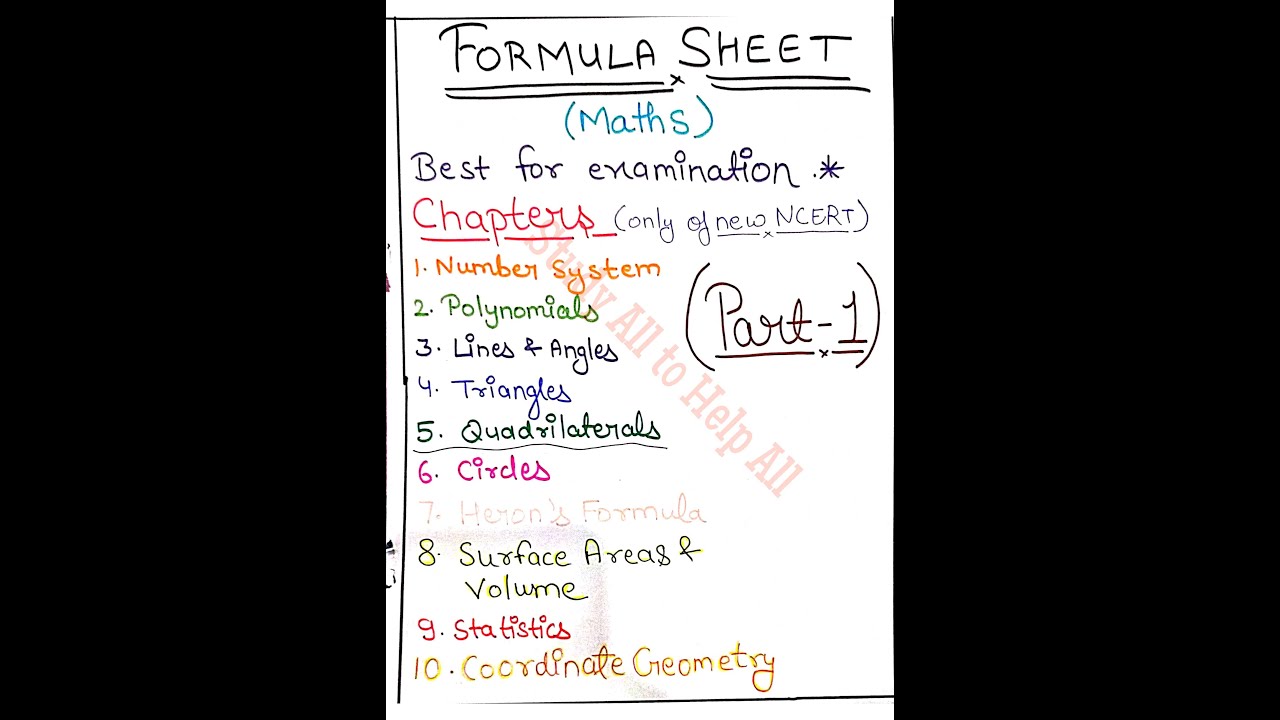 FORMULA SHEET
(Maths)
Best for examination.*
Chapters (only of new NCERT)
1. Number System
2. Polynomials
(Part-1)
3. Lines & Angles
4. Triangles
5. Quadrilaterals
6. Circles
7. Heron's Formula
8. Surface Areas &
Volume
9. Statistics
10. Coordinate Geometry
Study All to Help All